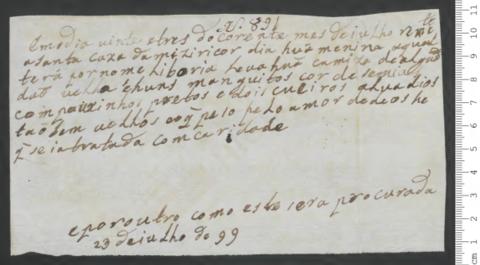 N. 891
Em o dia vinte e tres do corente mes de iulho remete
a santa caza da miziricordia huã menina a qual
terá por nome Liboria leva huã camiza de algo
daõ velha e huns manguitos cor de
com pauzinhos pretos e dois cueiros
taõbem velhos o q pelo pedo amor de deos he
q seia tratada com caridade
e por outro como este sera procurada
23 de iulho de 99